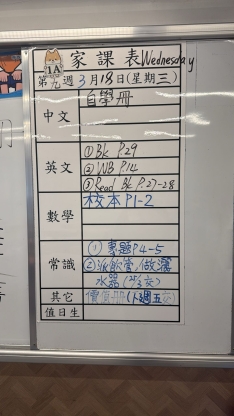 1A 家課表 Wednesday
第九週 3月18日(星期三)
中文 自學冊
英文
① Bk P.29
② WB P.14
③ Read Bk P.27-28
數學 校本P1-2
常識
① 專題P4-5
② 派飲管,做灑
水器
其它
值日生